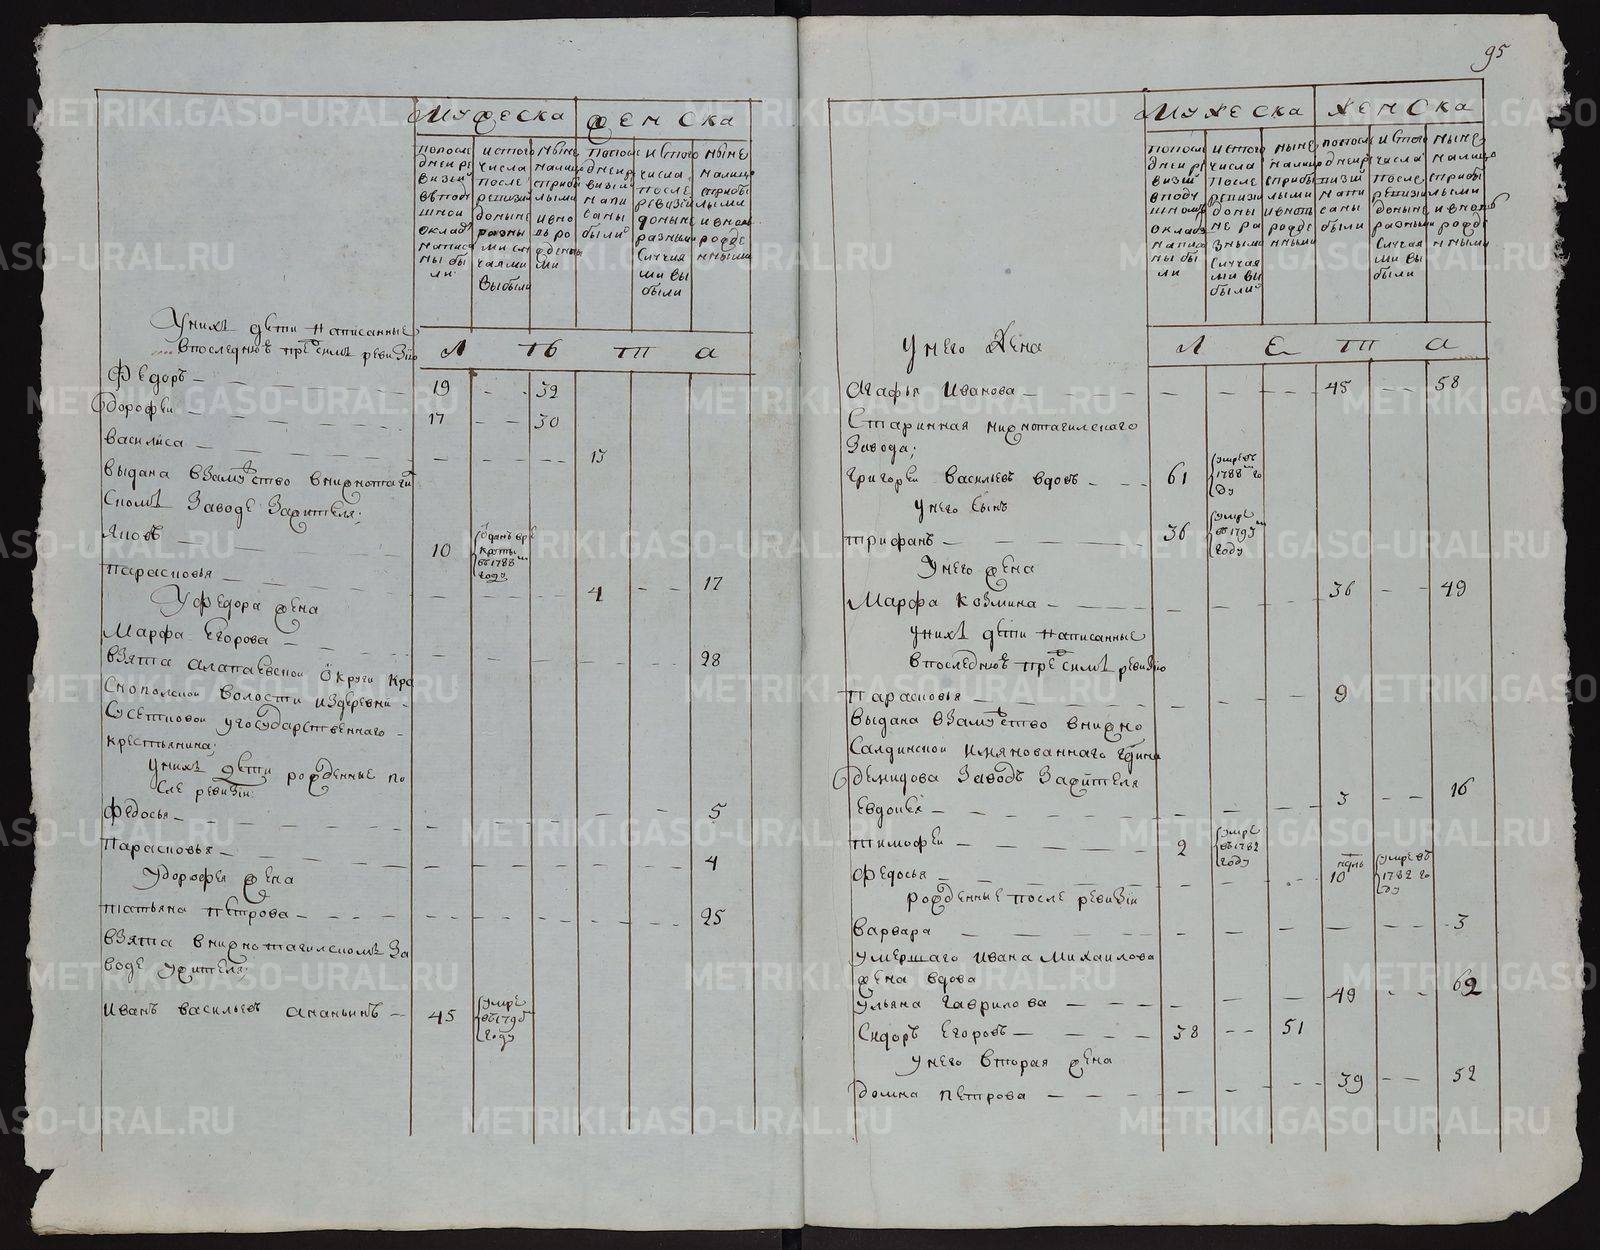 Мужеска
женска
попосле
дней ре
визии
вподу
шной
оклад
написа
ны бы
ли
исtого
числа
после
ревизии
доныне
разны
ми слу
чаями
выбыли
ныне
налицо
сприбы
лыми
ивно
вь ро
жденны
ми
попосле
дней ре
визии
напи
саны
были
истого
числа
после
ревизии
доныне
разными
случая
ми вы
были
ныне
налицо
сприбы
лыми
ивновь
рожде
нными
лѣта
Уних дети написанные
впоследнюю пред сим ревизию
Федоръ 19 - - 32
Дорофеи 17 - - 30
Василиса 13
выдана взамужство внижнотагил
ском заводе зажителя;
Яковъ 10 отданъ вре
круты
въ 1788м
году
Парасковья 4 - - 17
Уфедора жена
Марфа Егорова 28
взята алапаевской округи кра
снопольской волости издеревни
угосударственнаго
крестьянина;
Уних дети рожденные по
сле ревизии:
Федосья 5
Парасковья 4
Удорофея жена
татьяна петрова 25
взята внижнотагилском за
воде ужителя;
Иванъ васильевъ ананьинъ 45 умре
въ 1795м
году
95
Мужеска
женска
попосле
дней ре
визии
вподу
шномъ
окладе
написа
ны бы
ли
истого
числа
после
ревизии
доны
не ра
зными
случая
ми вы
были
ныне
налицо
сприбы
лыми
ивновь
рожде
нными
попосле
дней ре
визии
напи
саны
были
истого
числа
после
ревизии
доныне
разными
случая
ми вы
были
ныне
налицо
сприбы
лыми
ивновь
рожде
нными
лета
Унего жена
Агафья Иванова 45 - - 58
Старинная нижнотагилскаго
завода;
Григореи Васильевъ вдовъ 61 умре въ
1788м го
ду
Унего сынъ
трифанъ 36 умре
въ 1793м
году
Унего жена
Марфа Козмина 36 - - 49
Уних дети написанные
впоследнюю пред сим ревизию
Парасковья 9
выдана взамужство внижно
салдинской имянованнаго гдина
демидова заводъ зажителя
Евдокея 3 - - 16
тимофеи 2 умре
въ 1782
году
Федосья нделъ
10 умре въ
1782 го
ду
рожденные после ревизии
варвара 3
умершаго Ивана Михаилова
жена вдова
Ульяна Гаврилова 49 - - 62
Сидоръ Егоровъ 38 - - 51
Унего вторая жена
домна Петрова 39 - - 52
METRIKI.GASO-URAL.RU